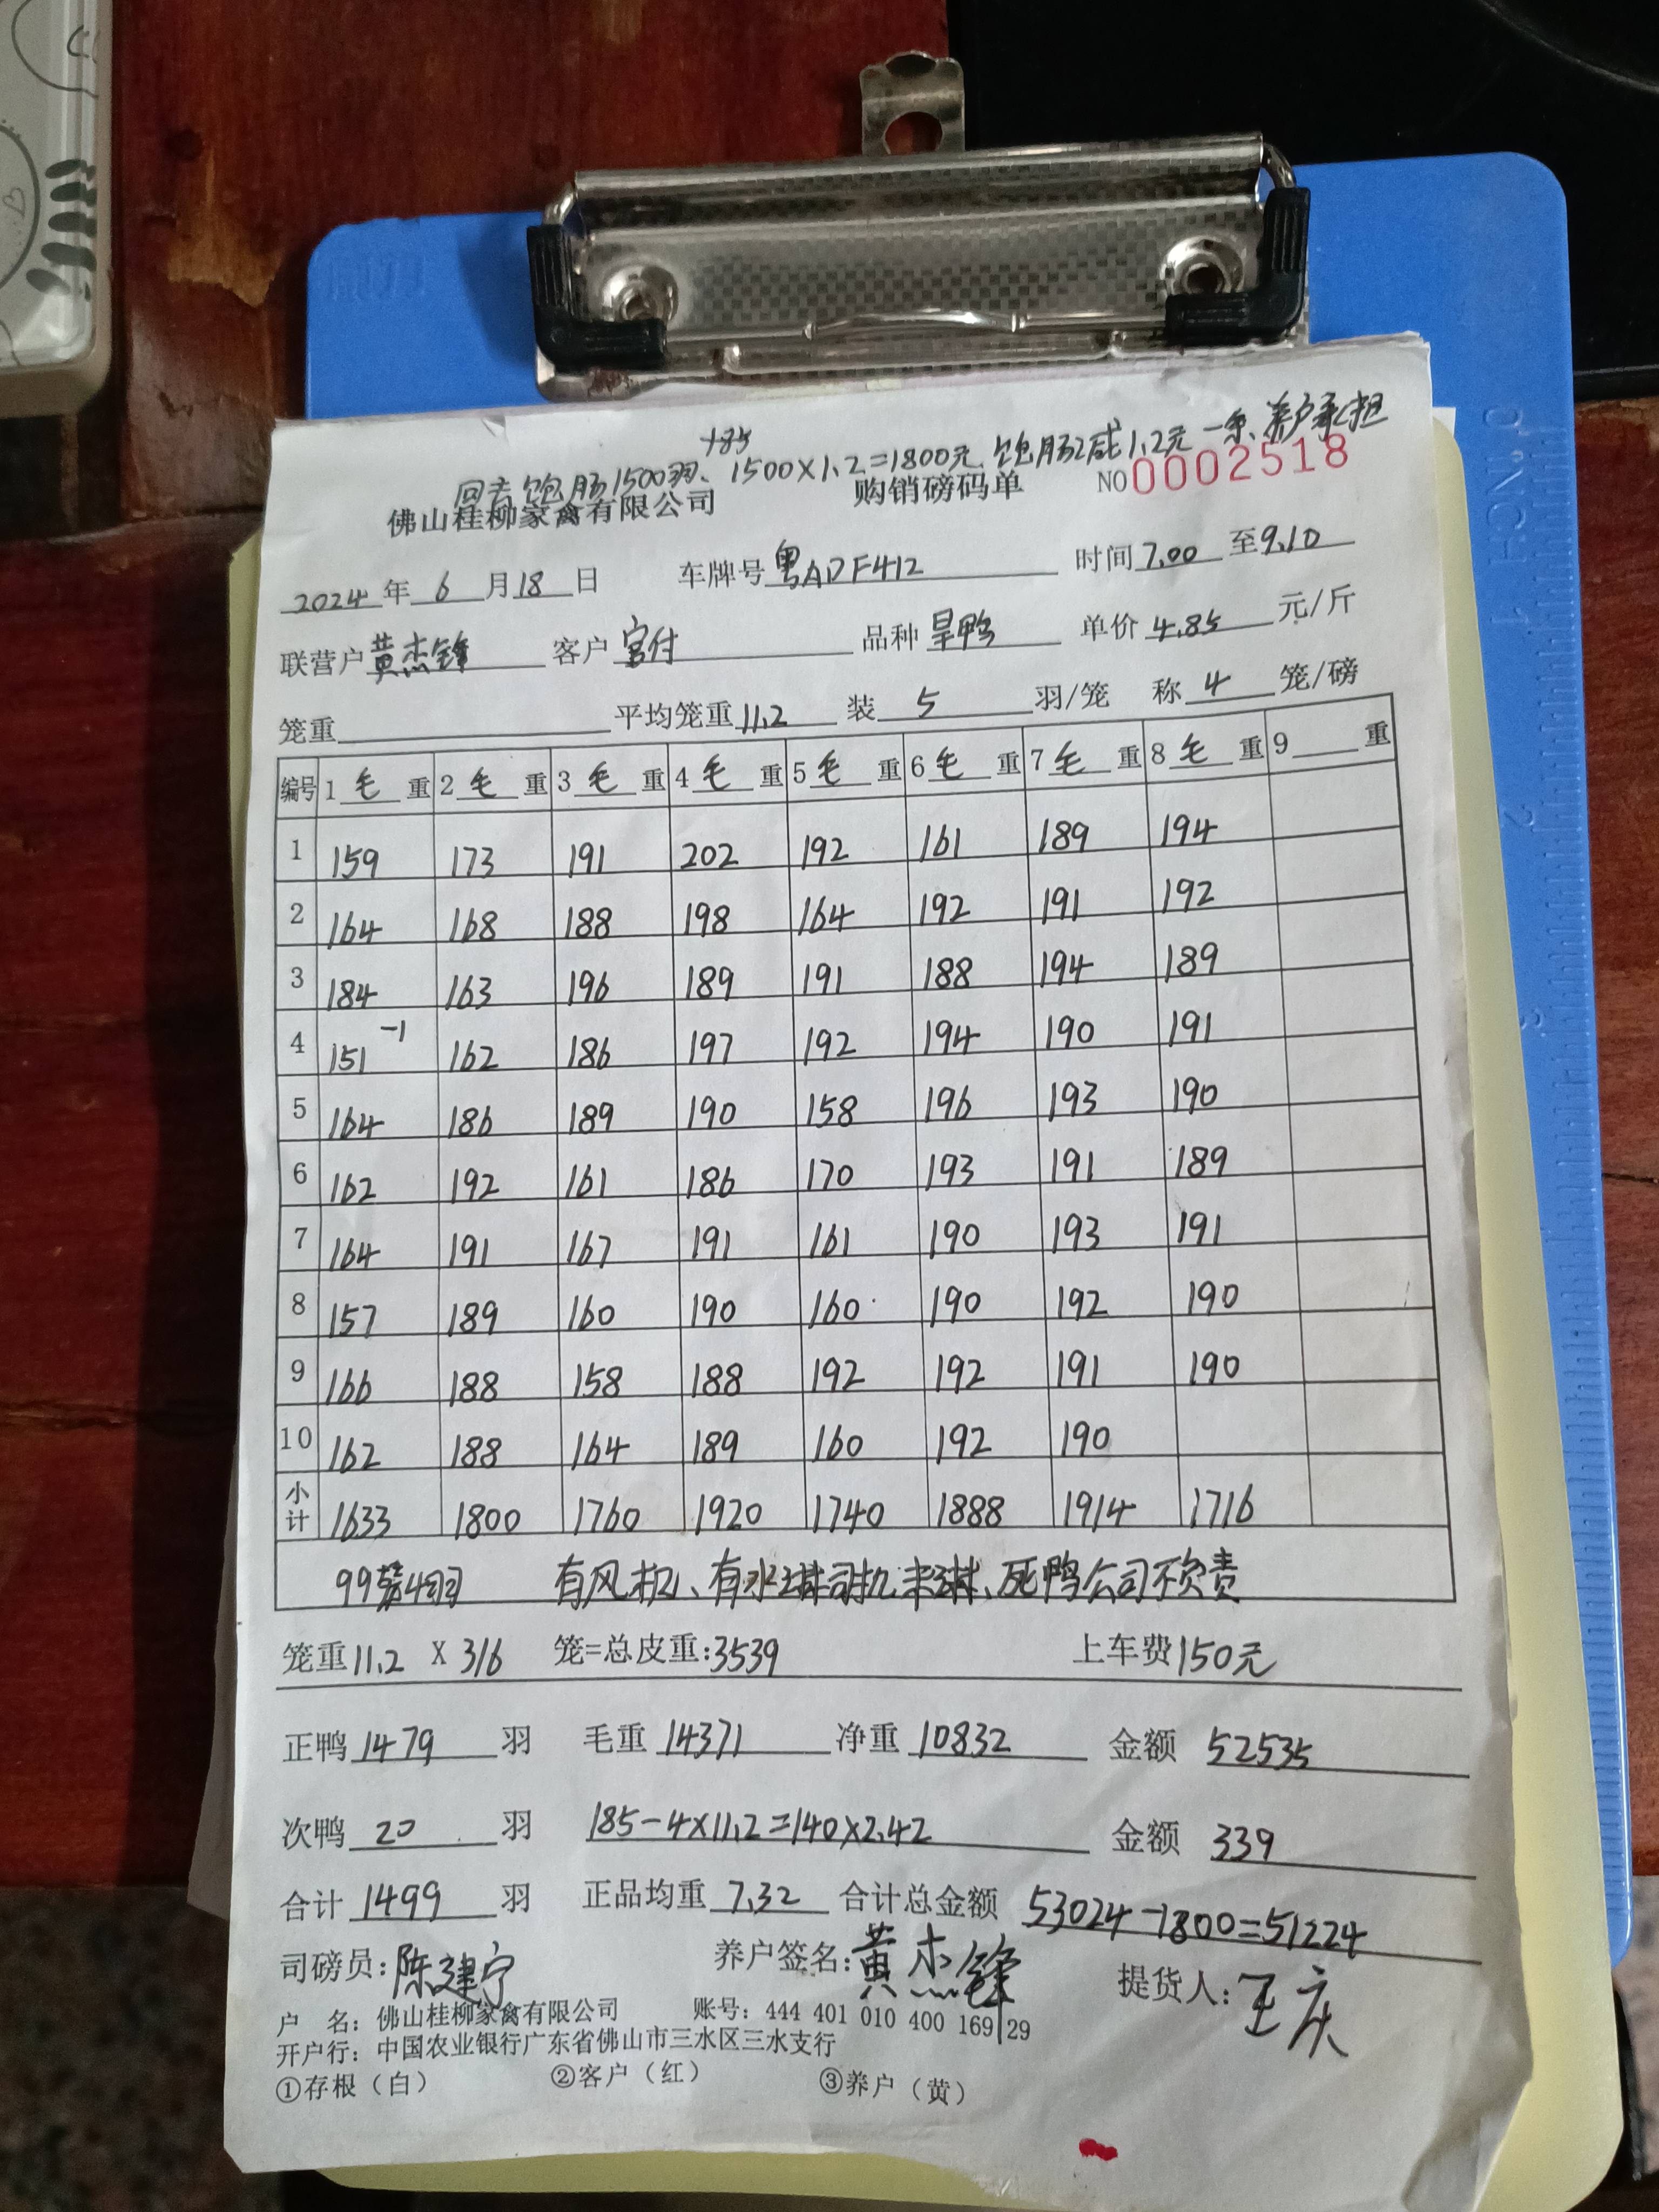 +85
回去饱肠1500羽、1500×1.2=1800元 饱肠减1.2元一条、养户承担
佛山桂柳家禽有限公司 购销磅码单 NO0002518
2024年6月18日 车牌号粤ADF412 时间7.00至9.10
联营户黄杰锋 客户宫付 品种旱鸭 单价4.85元/斤
笼重 平均笼重11.2 装5羽/笼 称4笼/磅
编号 1毛重 2毛重 3毛重 4毛重 5毛重 6毛重 7毛重 8毛重 9重
1 159 173 191 202 192 161 189 194
2 164 168 188 198 164 192 191 192
3 184 163 196 189 191 188 194 189
4 151 -1 162 186 197 192 194 190 191
5 164 186 189 190 158 196 193 190
6 162 192 161 186 170 193 191 189
7 164 191 167 191 161 190 193 191
8 157 189 160 190 160 190 192 190
9 166 188 158 188 192 192 191 190
10 162 188 164 189 160 192 190
小计 1633 1800 1760 1920 1740 1888 1914 1716
99装4羽 有风机、有水淋司机未淋、死鸭公司不负责
笼重11.2 X 316 笼=总皮重:3539 上车费150元
正鸭1479羽 毛重14371 净重10832 金额52535
次鸭20羽 185-4×11.2=140×2.42 金额339
合计1499羽 正品均重7.32 合计总金额53024-1800=51224
司磅员:陈建宁 养户签名:黄杰锋 提货人:王庆
户 名:佛山桂柳家禽有限公司 账号:444 401 010 400 169 29
开户行:中国农业银行广东省佛山市三水区三水支行
①存根(白) ②客户(红) ③养户(黄)